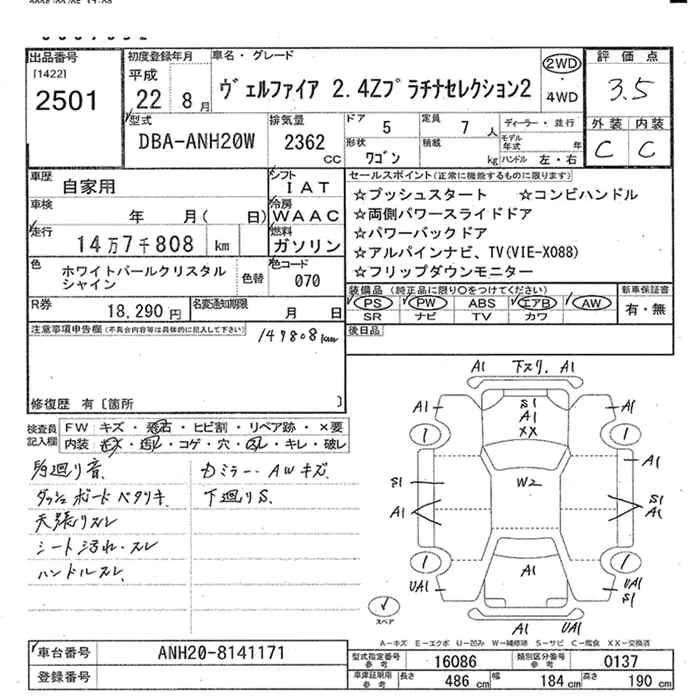 出品番号
[1422]
2501
初度登録年月
平成
22 8月
車名・グレード
ヴェルファイア 2.4Zプラチナセレクション2
2WD
・
4WD
評価点
3.5
外装 内装
C C
型式
DBA-ANH20W
排気量
2362
CC
ドア 5
定員 7 人
形状 ワゴン
積載 kg
ディーラー・並行
モデル年 年
ハンドル 左・右
車歴
自家用
シフト
IAT
車検
年 月( 日)
冷房
WAAC
走行
14万7千808 km
燃料
ガソリン
色
ホワイトパールクリスタル
シャイン
色替
色コード
070
R券
18,290円
名変通知期限
月 日
セールスポイント(正常に機能するものに限ります)
☆プッシュスタート ☆コンビハンドル
☆両側パワースライドドア
☆パワーバックドア
☆アルパインナビ、TV(VIE-X088)
☆フリップダウンモニター
装備品(純正品に限り○をつけてください)
PS PW ABS エアB AW
SR ナビ TV カワ
新車保証書
有・無
後日品
注意事項申告欄(不具合内容等は具体的に記入して下さい)
147808km
修復歴 有〔箇所 〕
検査員
記入欄
FW キズ・飛石・ヒビ割・リペア跡・×要
内装 キズ・汚レ・コゲ・穴・スレ・キレ・破レ
ダッシュボードベタツキ
天張リスレ
シート汚れ・スレ
ハンドルスレ
カミラー・AWキズ
下廻りS
A1 下スリ A1
A1 S1 A1
A1
XX
A1
W2
S1 S1
A1 A1
A1
UA1 UA1
S1
A1 UA1
スペア
A-キズ E-エクボ U-凹み W-補修跡 S-サビ C-腐食 XX-交換済
車台番号
ANH20-8141171
登録番号
型式指定番号
参考
16086
類別区分番号
参考
0137
車庫証明用
参考
長さ 486 cm
幅 184 cm
高さ 190 cm